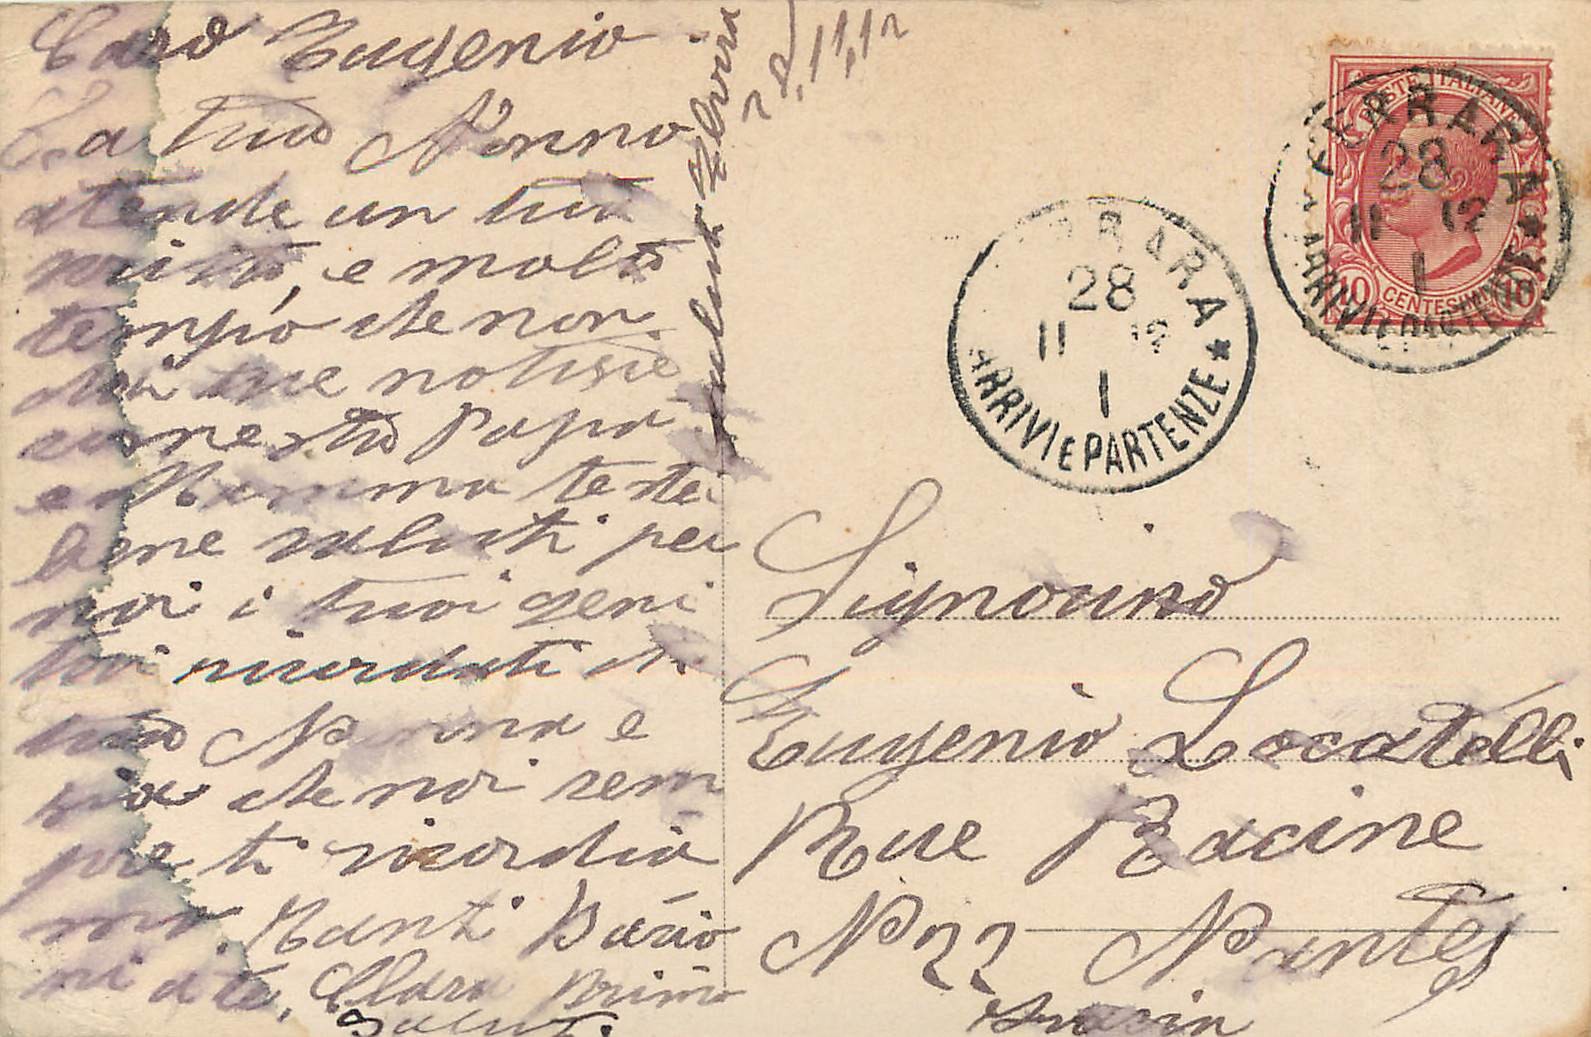 Caro Eugenio
La tuo Nonno
atende un tuo
visito, e molto
tempo che non
dai tue notisie
come sta Papa
e Mamma te stai
bene saluti per
noi i tuoi geni
tori ricordati di
tuo Nonna e
sia che noi sem
pre ti ricordia
mo. Tanti Bacio
ni a te, Clara Primo
Saluti
saluta Elvira
28,11,12
POSTE ITALIANE
10 CENTESIMI 10
FERRARA
28
11 12
1
ARRIVI E PARTENZE
FERRARA
28
11 12
1
ARRIVI E PARTENZE
Signorino
Eugenio Locatelli
Rue Racine
N 22 Nantes
Francia